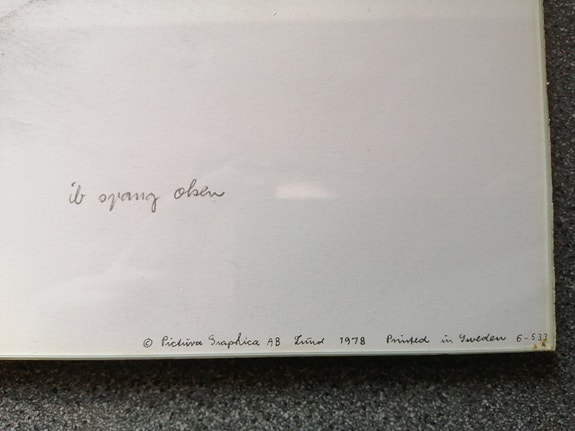 ib spang olsen
© Pictura Graphica AB Lund 1978 Printed in Sweden 6-533